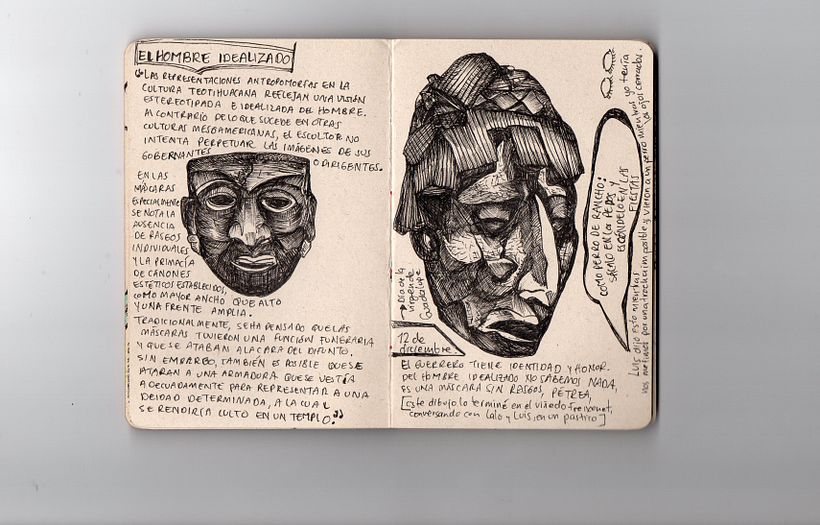 EL HOMBRE IDEALIZADO
"LAS REPRESENTACIONES ANTROPOMORFAS EN LA
CULTURA TEOTIHUACANA REFLEJAN UNA VISIÓN
ESTEREOTIPADA E IDEALIZADA DEL HOMBRE.
AL CONTRARIO DE LO QUE SUCEDE EN OTRAS
CULTURAS MESOAMERICANAS, EL ESCULTOR NO
INTENTA PERPETUAR LAS IMÁGENES DE SUS
GOBERNANTES O DIRIGENTES.
EN LAS
MÁSCARAS
ESPECIALMENTE
SE NOTA LA
AUSENCIA
DE RASGOS
INDIVIDUALES
Y LA PRIMACÍA
DE CÁNONES
ESTÉTICOS ESTABLECIDOS,
COMO MAYOR ANCHO QUE ALTO
Y UNA FRENTE AMPLIA.
TRADICIONALMENTE, SE HA PENSADO QUE LAS
MÁSCARAS TUVIERON UNA FUNCIÓN FUNERARIA
Y QUE SE ATABAN A LA CARA DEL DIFUNTO.
SIN EMBARGO, TAMBIÉN ES POSIBLE QUE SE
ATARAN A UNA ARMADURA QUE SE VESTÍA
ADECUADAMENTE PARA REPRESENTAR A UNA
DEIDAD DETERMINADA, A LA CUAL
SE RENDIRÍA CULTO EN UN TEMPLO."
Día de la
virgen de
Guadalupe
12 de
diciembre.
EL GUERRERO TIENE IDENTIDAD Y HONOR.
DEL HOMBRE IDEALIZADO NO SABEMOS NADA,
ES UNA MÁSCARA SIN RASGOS, PÉTREA,
[Este dibujo lo terminé en el viñedo Freixenet,
conversando con Lalo y Luis, en un pastito]
COMO PERRO DE RANCHO:
SUELTO EN LA PEDA Y
ESCONDELO EN LAS
FIESTAS
Luis dijo esto mientras
nos metimos por una trocha imposible y vieron a un perro mientras yo tenía
los ojos cerrados.